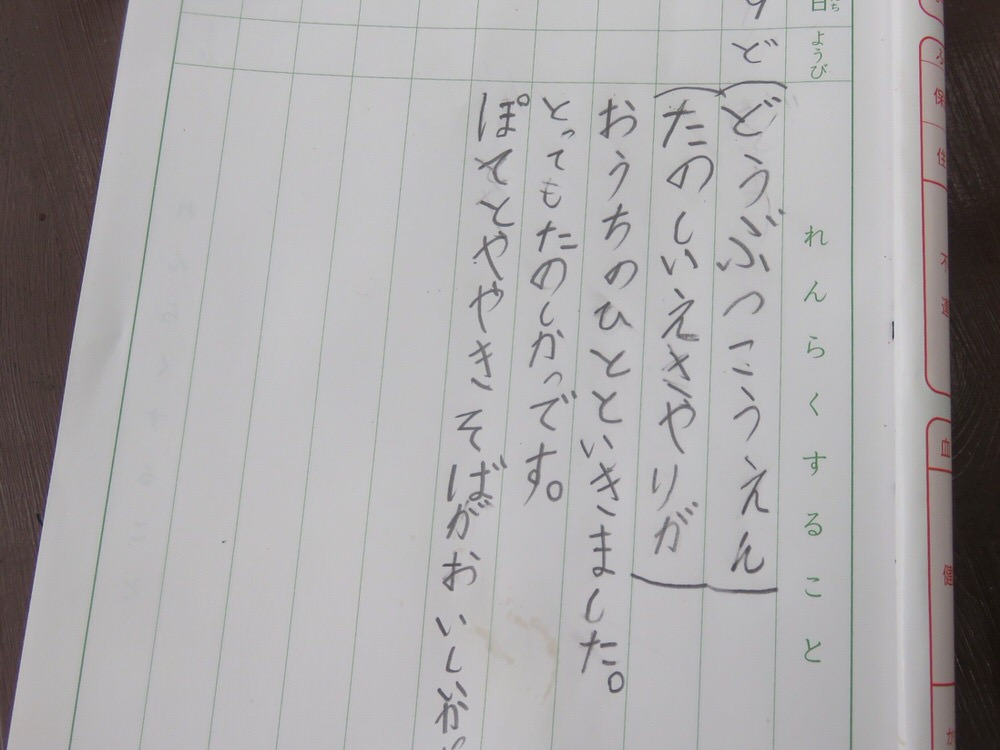 れんらくすること
ようび
ど
どうぶつこうえん
たのしいえさやりが
おうちのひとといきました。
とってもたのしかっです。
ぽてとややきそばがおいしいか
日
保
住
血
健